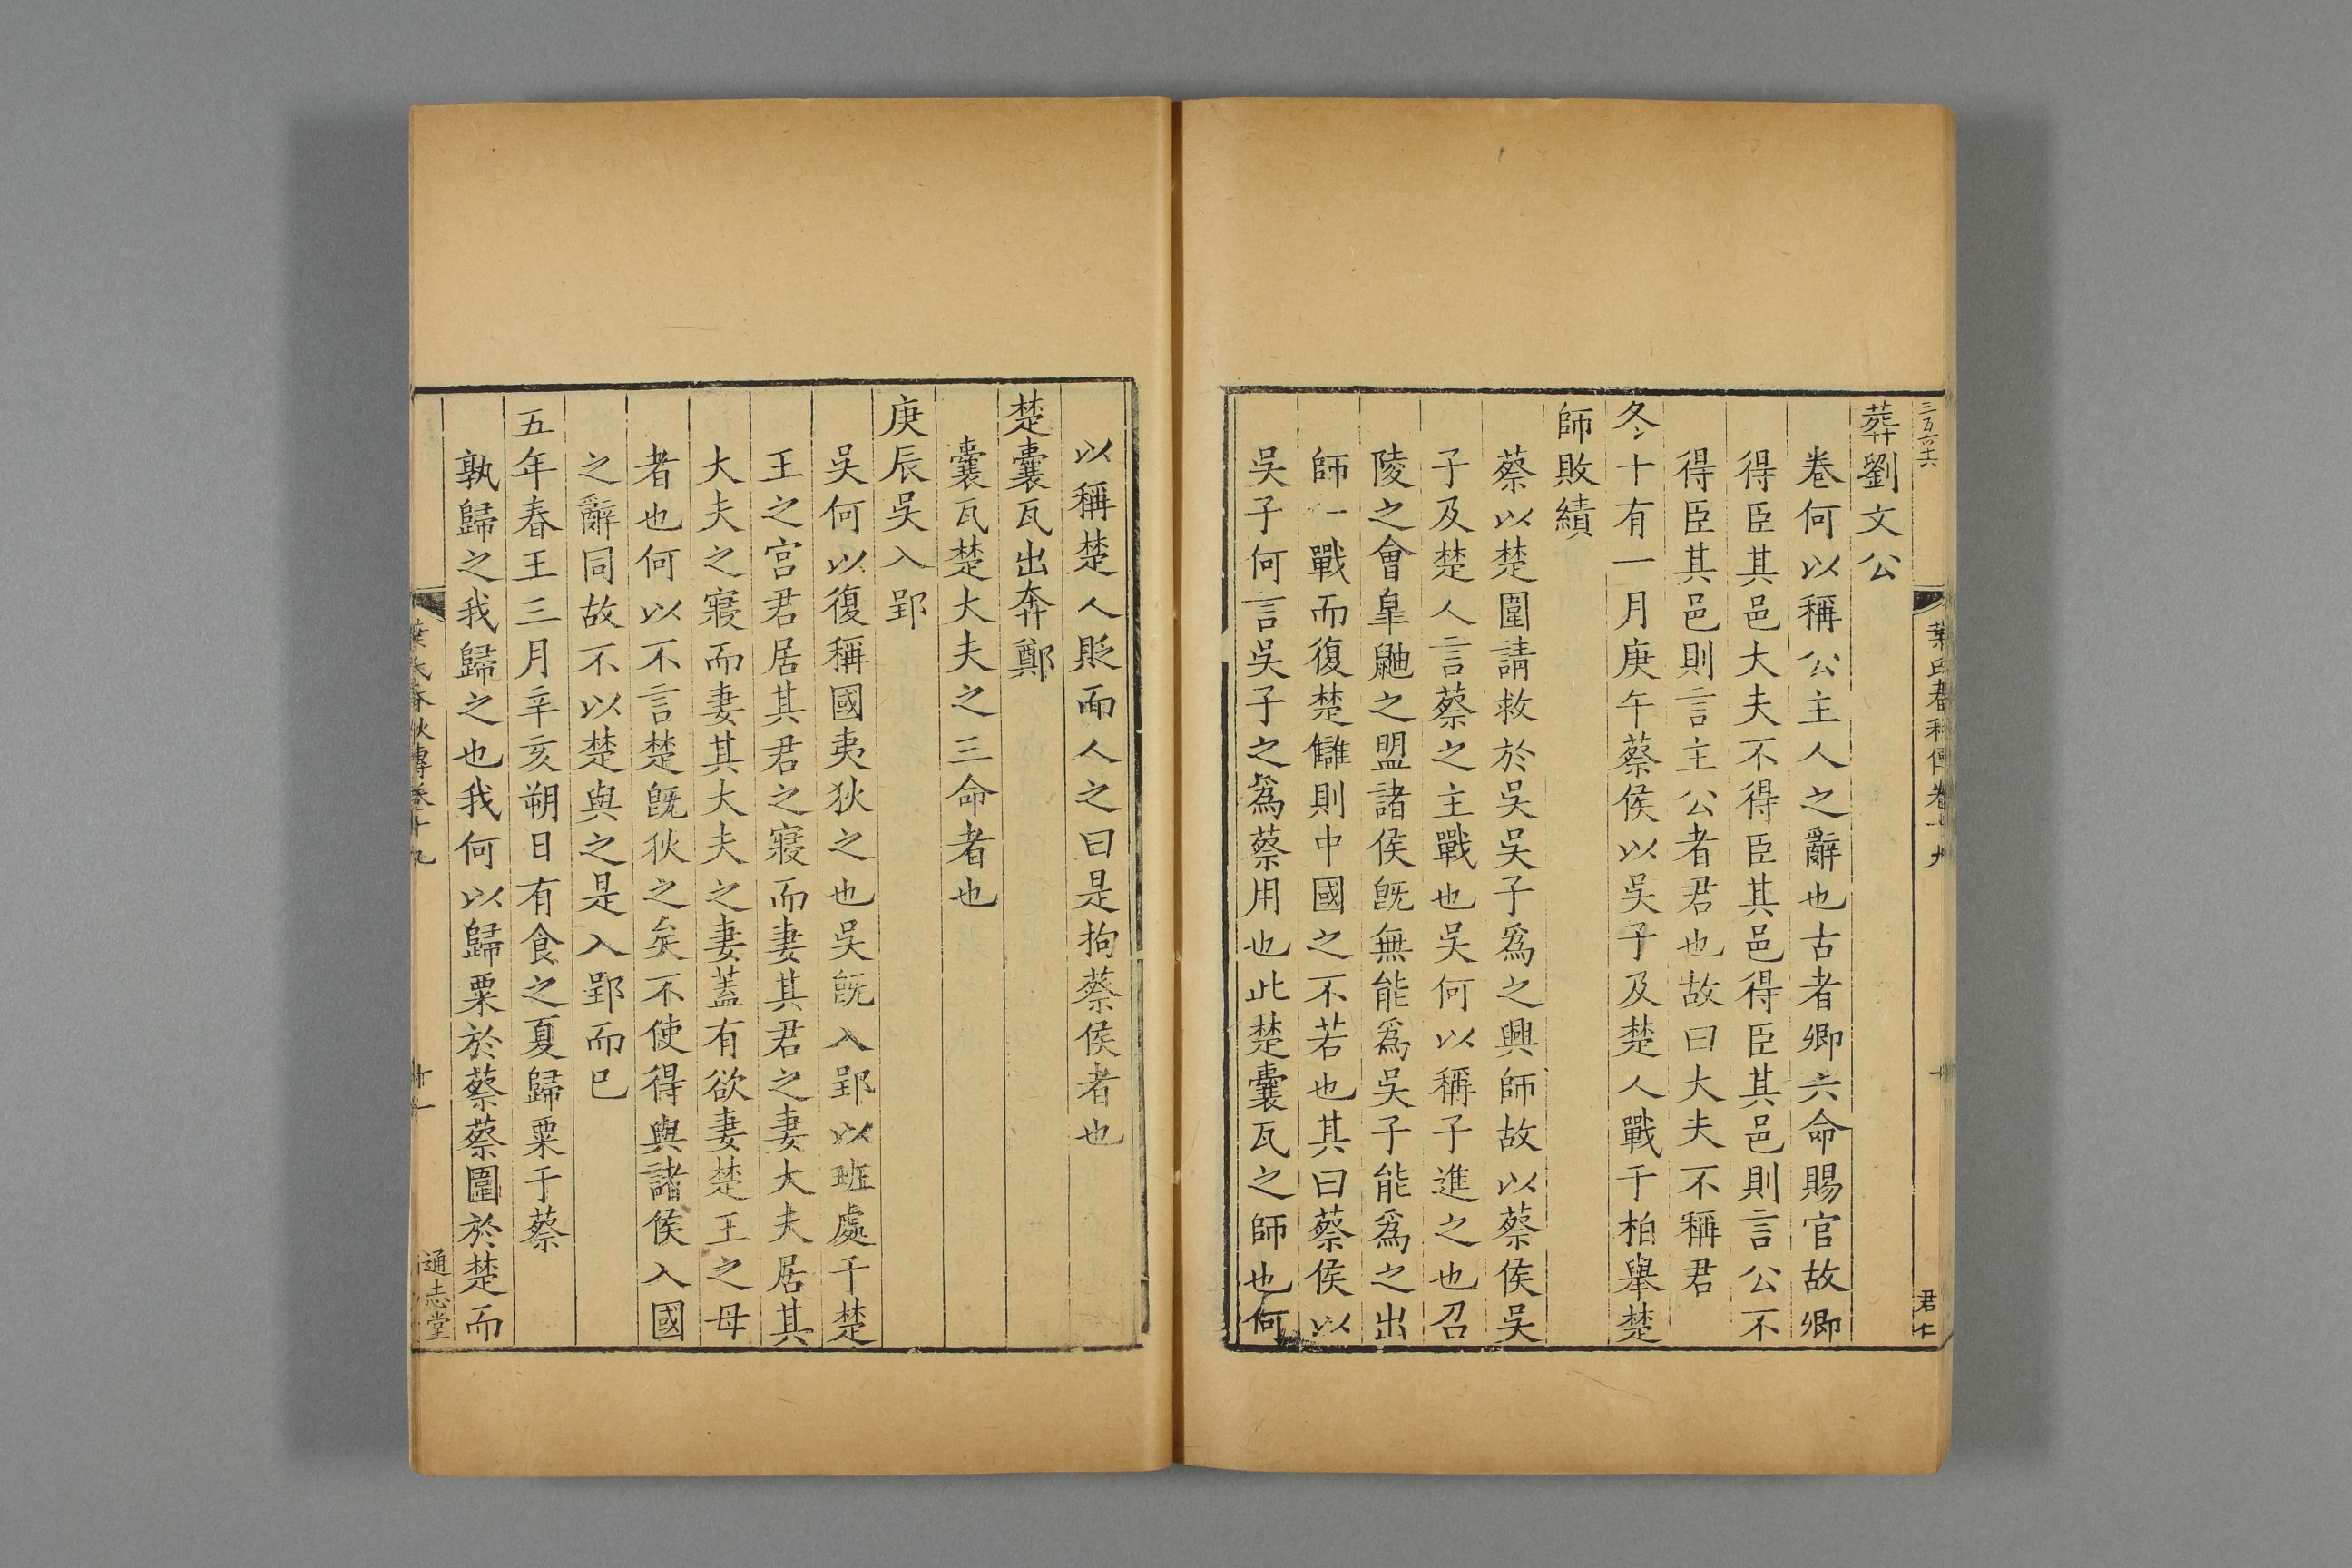 三百六十六
葉氏春秋傳卷十九
君仁
葬劉文公
卷何以稱公主人之辭也古者卿六命賜官故卿
得臣其邑大夫不得臣其邑得臣其邑則言公不
得臣其邑則言主公者君也故曰大夫不稱君
冬十有一月庚午蔡侯以吳子及楚人戰于柏舉楚
師敗績
蔡以楚圍請救於吳吳子爲之興師故以蔡侯吳
子及楚人言蔡之主戰也吳何以稱子進之也召
陵之會皐鼬之盟諸侯旣無能爲吳子能爲之出
師一戰而復楚讎則中國之不若也其曰蔡侯以
吳子何言吳子之爲蔡用也此楚囊瓦之師也何
以稱楚人貶而人之曰是拘蔡侯者也
楚囊瓦出奔鄭
囊瓦楚大夫之三命者也
庚辰吳入郢
吳何以復稱國夷狄之也吳旣入郢以班處于楚
王之宮君居其君之寢而妻其君之妻大夫居其
大夫之寢而妻其大夫之妻蓋有欲妻楚王之母
者也何以不言楚旣狄之矣不使得與諸侯入國
之辭同故不以楚與之是入郢而已
五年春王三月辛亥朔日有食之夏歸粟于蔡
孰歸之我歸之也我何以歸粟於蔡蔡圍於楚而
葉氏春秋傳卷十九
十一
通志堂